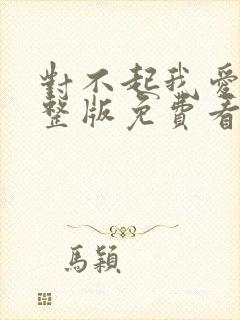 對不起我愛
整版免費看
馬穎